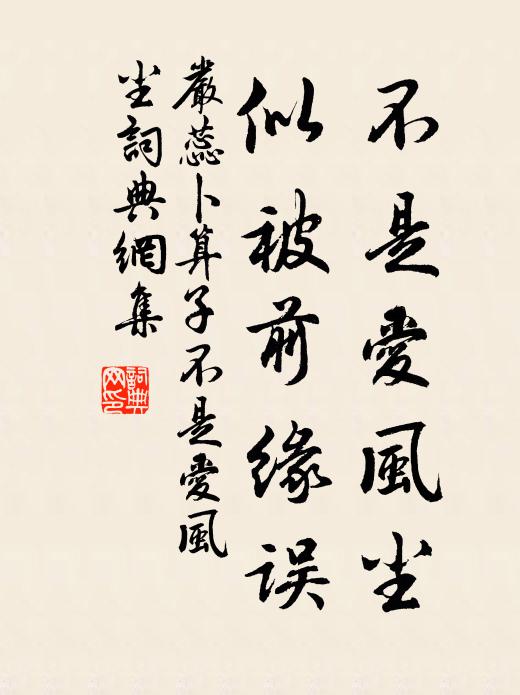 不是愛風尘
似被前缘误
嚴蕊卜算子不是愛風
尘詞典網集
詞典网印